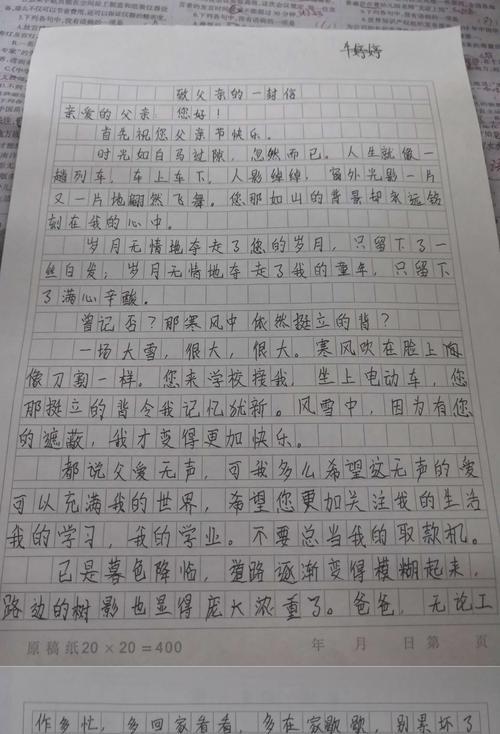 牛婷婷
敬父亲的一封信
亲爱的父亲：您好！
首先祝您父亲节快乐。
时光如白马过隙，忽然而已。人生就像一
趟列车，车上车下，人影绰绰，窗外光影一片
又一片地翩然飞舞。您那如山的背景却永远铭
刻在我的心中。
岁月无情地夺走了您的岁月，只留下了一
丝白发；岁月无情地夺走了我的童年，只留下
了满心辛酸。
曾记否？那寒风中依然挺立的背？
一场大雪，很大，很大。寒风吹在脸上向
像刀割一样。您来学校接我，坐上电动车，您
那挺立的背令我记忆犹新。风雪中，因为有您
的遮蔽，我才变得更加快乐。
都说父爱无声，可我多么希望这无声的爱
可以充满我的世界，希望您更加关注我的生活
我的学习，我的学业。不要总当我的取款机。
已是暮色降临，道路逐渐变得模糊起来，
路边的树影也显得庞大浓重了。爸爸，无论工
原稿纸20×20=400 年 月 日第 页
作多忙，多回家看看，多在家歇歇，别累坏了